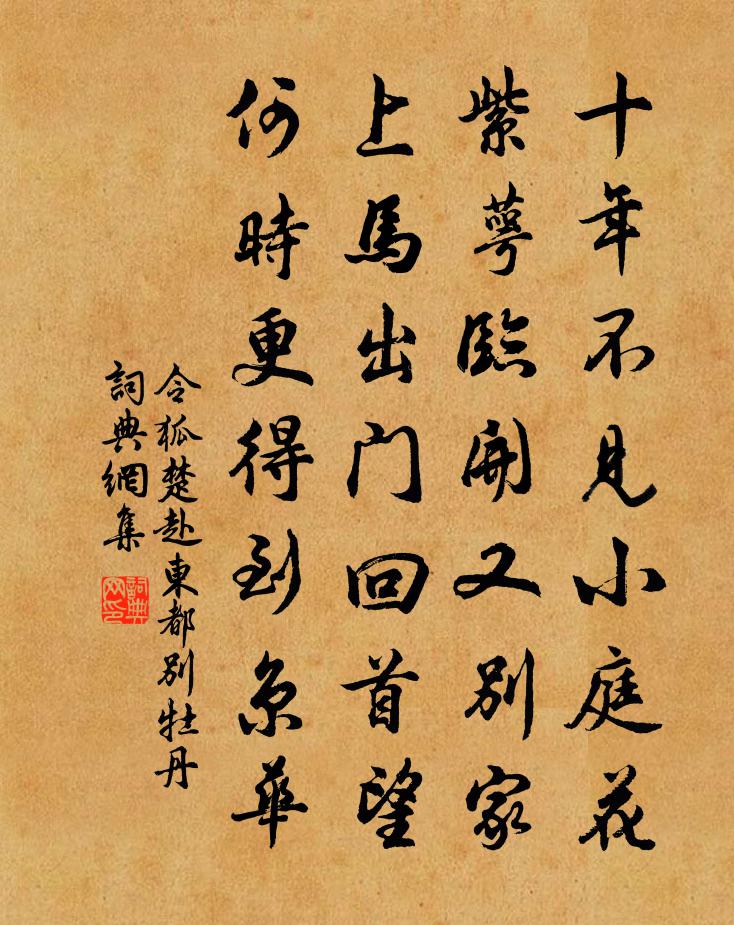 十年不見小庭花
紫萼臨開又別家
上馬出門回首望
何時更得到京華
令狐楚赴東都別牡丹
詞典網集
詞典网印